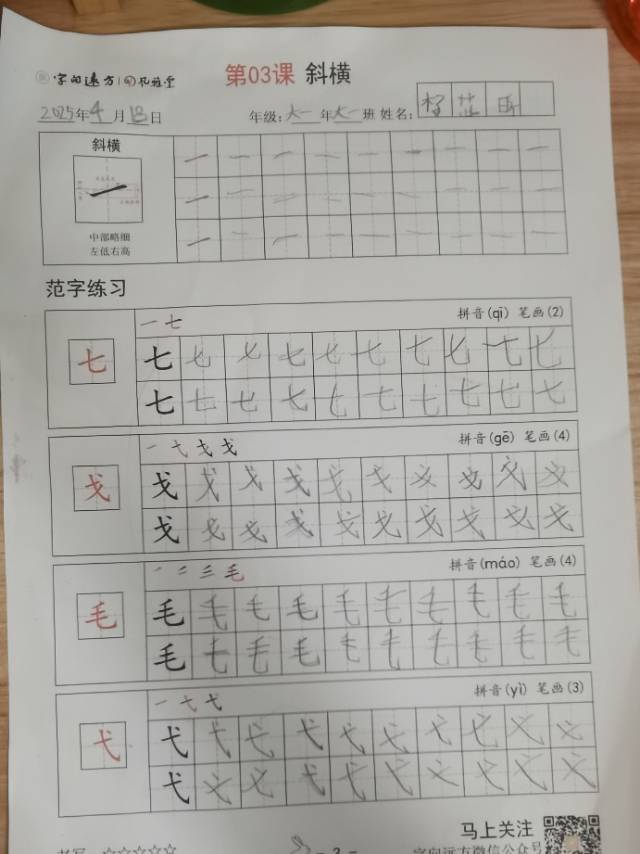 字的远方 孔雅堂
第03课 斜横
2025年4月13日 年级:大一年大一班 姓名:
斜横
中部略细
左低右高
范字练习
一七 拼音(qī) 笔画(2)
七 七 七 七 七 七 七 七 七 七 七
七 七 七 七 七 七 七 七 七 七
拼音(gē) 笔画(4)
戈 戈 戈 戈 戈 戈 戈 戈 戈 戈 戈
戈 戈 戈 戈 戈 戈 戈 戈 戈 戈
一 二 三 毛 拼音(máo) 笔画(4)
毛 毛 毛 毛 毛 毛 毛 毛 毛 毛 毛
毛 毛 毛 毛 毛 毛 毛 毛 毛 毛
一 七 弋 拼音(yì) 笔画(3)
弋 弋 弋 弋 弋 弋 弋 弋 弋 弋 弋
弋 弋 弋 弋 弋 弋 弋 弋 弋 弋
马上关注
书写:☆☆☆☆☆ - 3 - 字向远方微信公众号